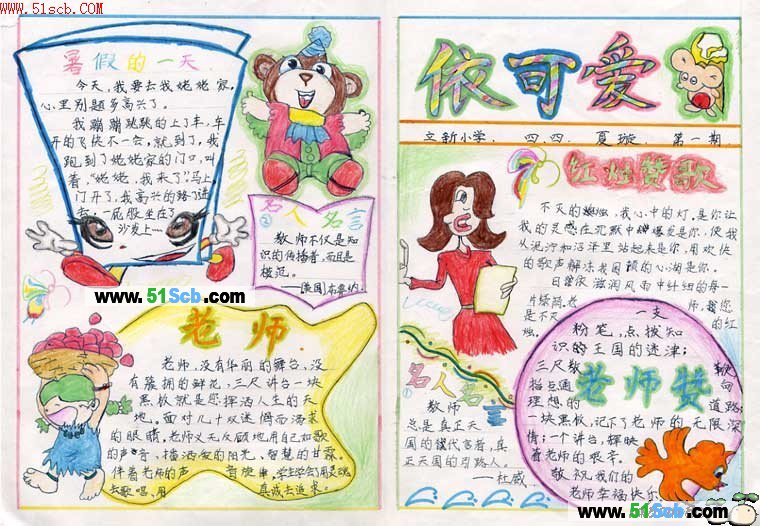 www.51scb.com
暑假的一天
今天，我要去我姥姥家，
心里别题多高兴了。
我蹦蹦跳跳的上了车，车
开的飞快不一会，就到了，我
跑到了姥姥家的门口，叫
着，“姥姥，我来了”马上，
门开了，我高兴的
去，一屁股坐在了
沙发上……
名人名言
②
教师不仅是知
识的传播者，而且是
模范。
www.51Scb.com
老师
老师，没有华丽的舞台，没
有簇拥的鲜花，三尺讲台一块
黑板就是您挥洒人生的天
地。面对几十双迷惘而渴求
的眼睛，老师义无反顾地用自己如歌
的声音，播洒爱的阳光、智慧的甘霖。
伴着老师的声音
去歌唱，用真诚去追求。
依可爱
立新小学、四、四、夏璇、第一期
红烛赞歌
不灭的，我心中的灯。是你让
我的灵感在沉默中爆发是你，使我
从泥泞和沼泽里站起来是你，用欢快
的歌声
滋润风雨中的每一
片绿荷，老师，我
是不灭的红
烛。
名人名言
①
教师
总是真正天
国的代言者，真
正天国的引路人。
——杜威
老师赞
一支
粉笔，点拨知
识的王国的迷津；
三尺教鞭
指点通向
理想的道路；
一块黑板，记下了老师的无限深
情；一个讲台，辉映
着老师的艰辛。
敬祝我们的
老师幸福快乐
www.51Scb.com